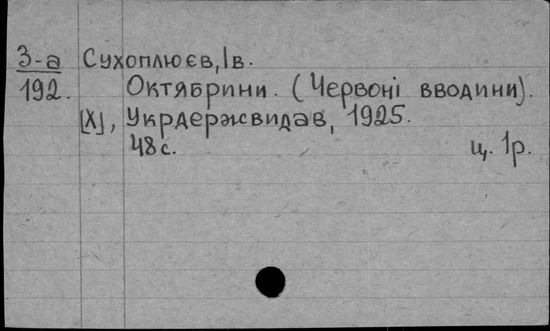 З-а Сухоплюєв, Ів.
192. Октябрини. (Червоні вводини).
[Х], Укрдержвидав, 1925.
48 с. ц. 1 р.